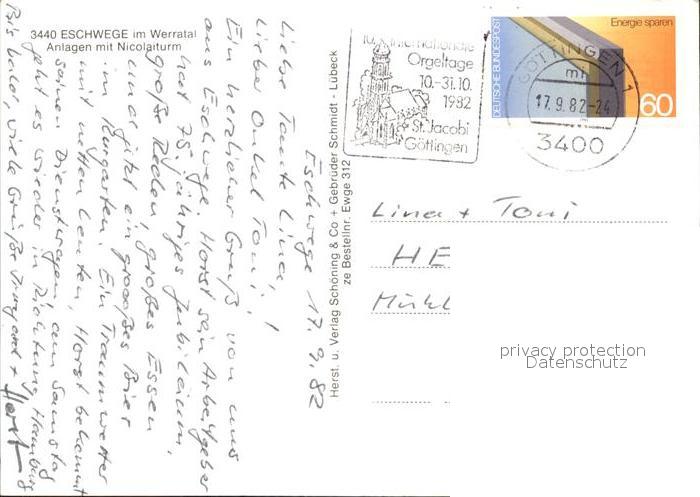 3440 ESCHWEGE im Werratal
Anlagen mit Nicolaiturm
Eschwege 17.9.82
Liebe Tante Lina,!
Lieber Onkel Toni,!
Ein herzlicher Gruß von uns
aus Eschwege. Horst sein Arbeitgeber
hat 75. jähriges Jubiläum,
große Reden, großes Essen
und jetzt ein großes Bier
im Kurgarten. Ein Traumwetter
mit netten Leuten, Horst bekommt
seinen Dienstwagen, am Samstag
geht es wieder in Richtung Hamburg
Bis bald, viele Grüße + Horst
Herst. u. Verlag Schöning & Co + Gebrüder Schmidt - Lübeck
ze Bestellnr. Ewge 312
10. Internationale
Orgeltage
10.-31.10.
1982
St. Jacobi
Göttingen
DEUTSCHE BUNDESPOST
Energie sparen
60
GÖTTINGEN 1
mi
17.9.82-24
3400
Lina + Toni
HE
Mühl
privacy protection
Datenschutz